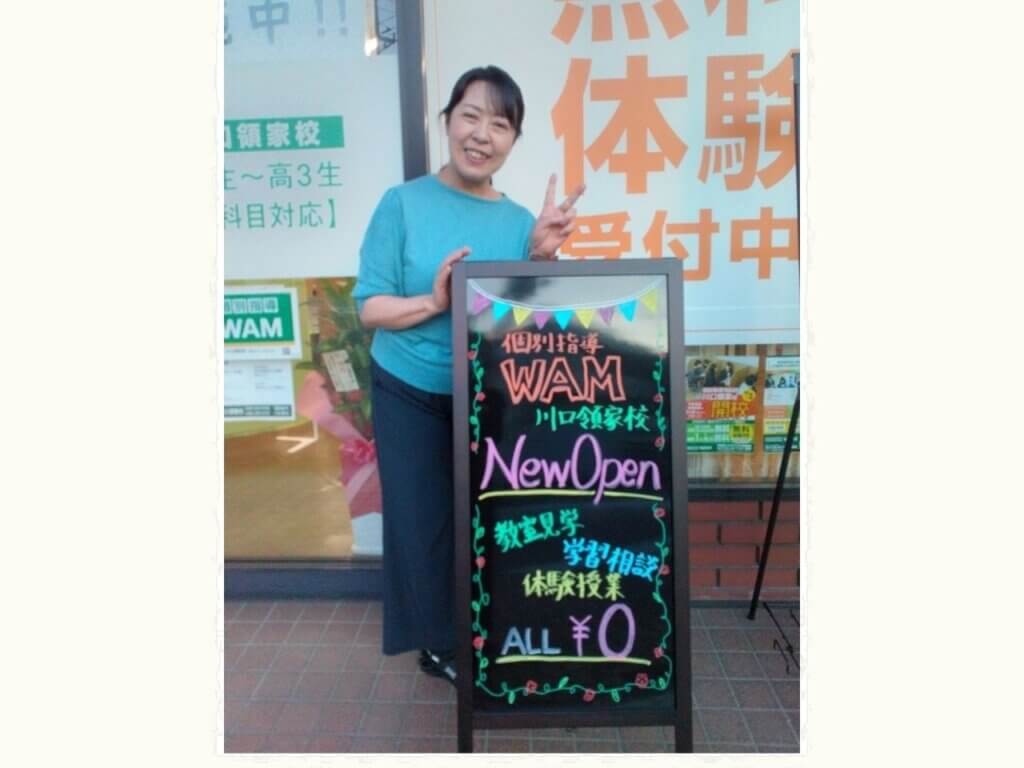 中!!
領家校
～高3生
科目対応】
体験
受付中
WAM
個別指導
WAM
川口領家校
New Open
教室見学
学習相談
体験授業
ALL ¥0
開校
無料